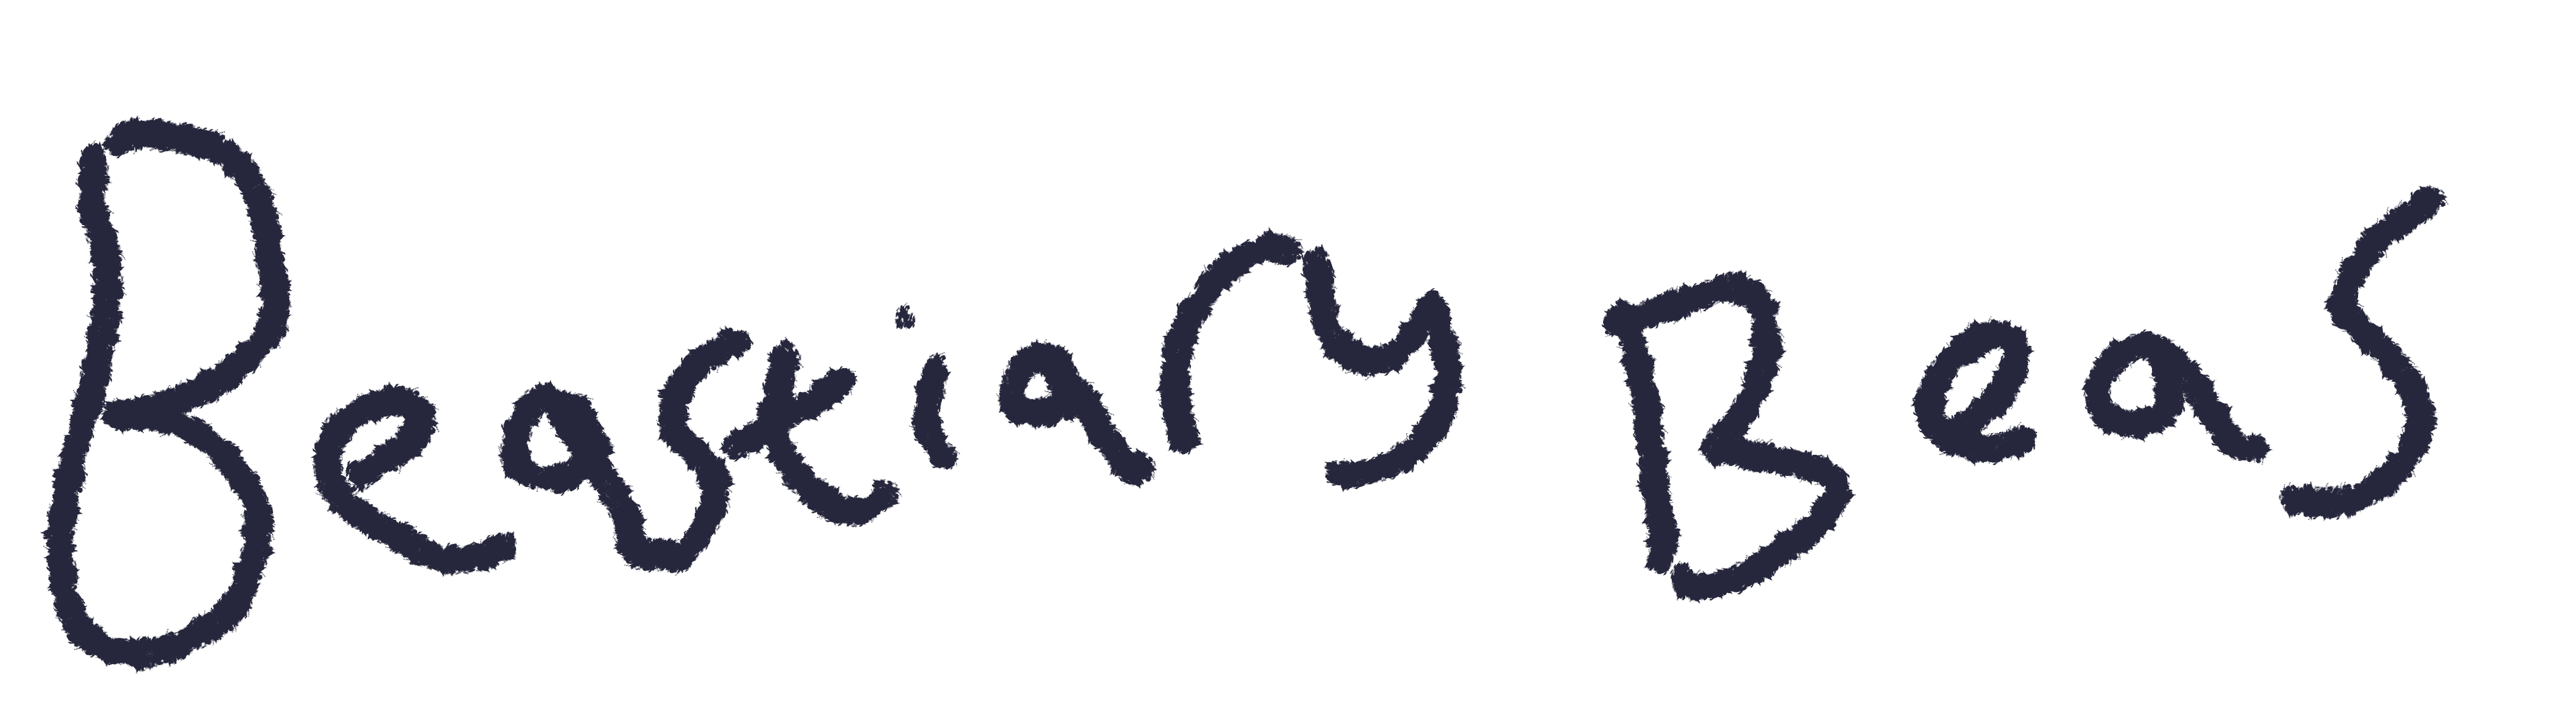 Beastiary Beas